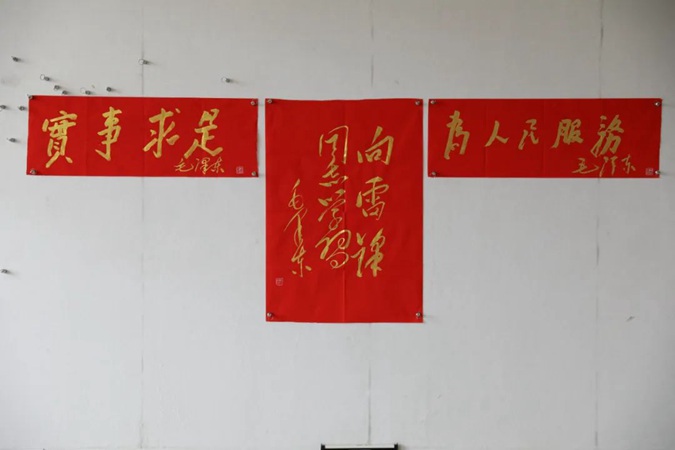 實事求是
毛澤东
向雷锋
同志学习
毛泽东
為人民服務
毛泽东